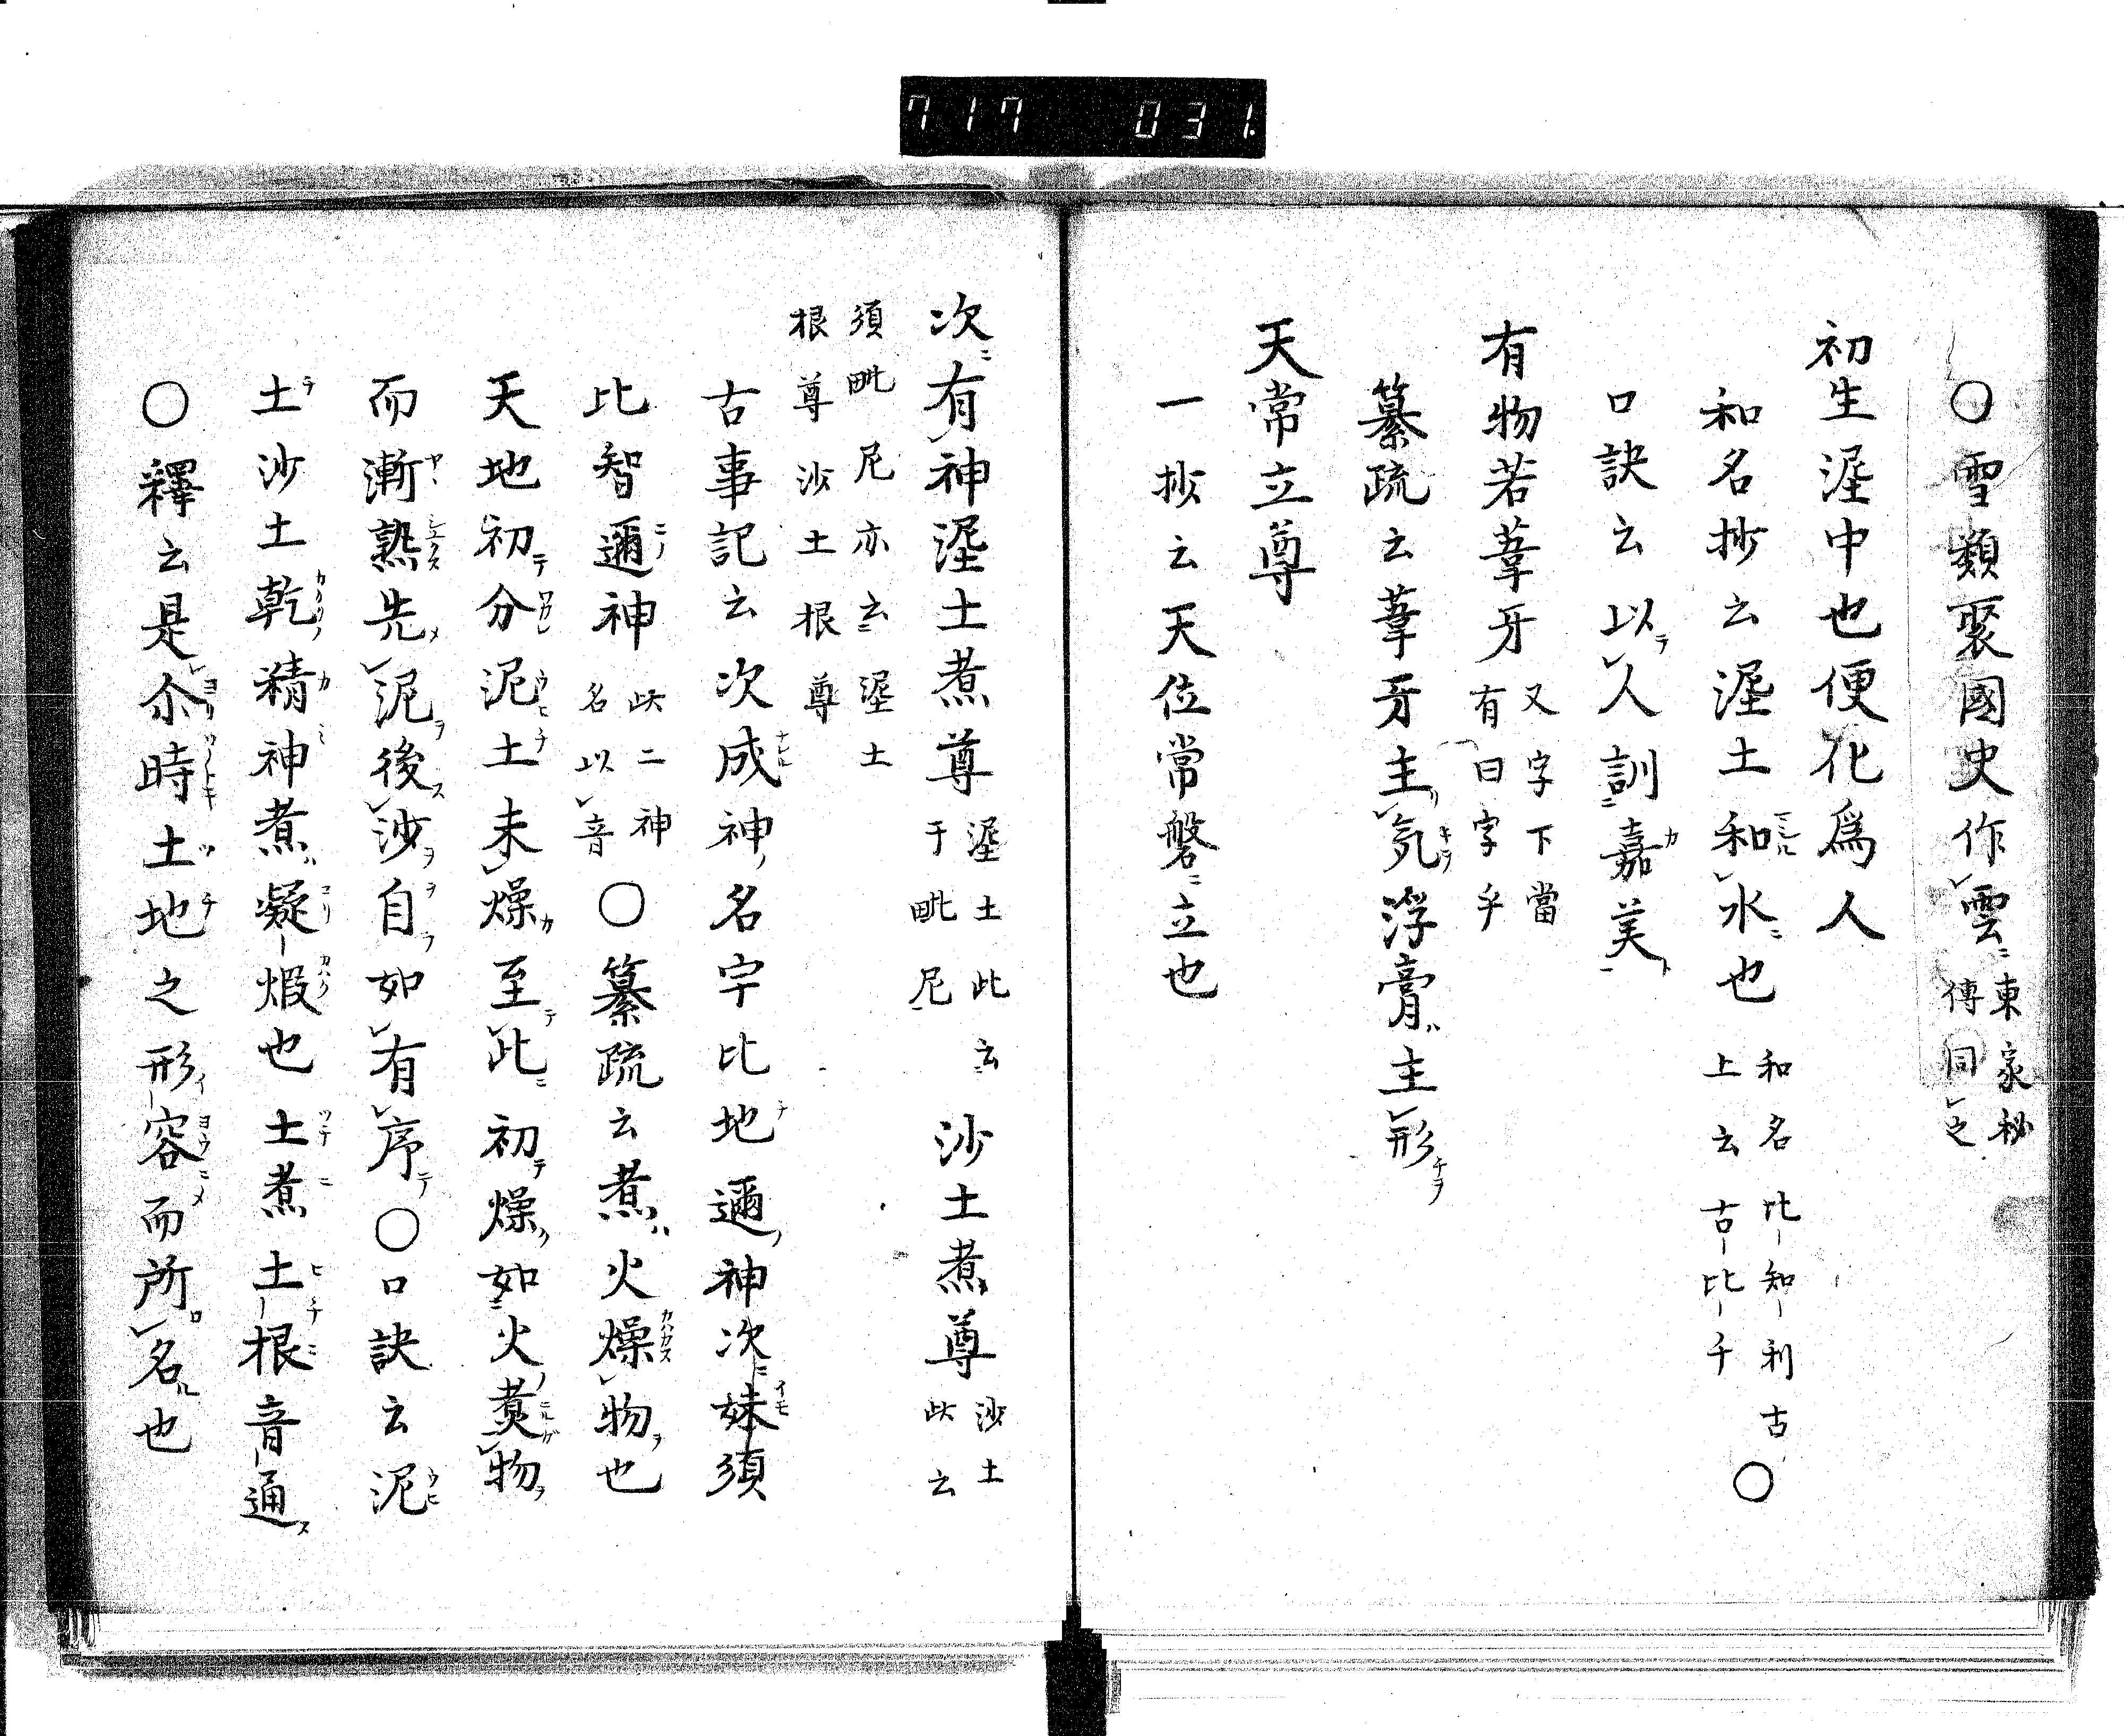 717 031
〇雪類聚國史作雲 東家秘傳同之
初生涅中也便化爲人
和名抄云涅土和水也 和名比知利古上云古比千〇
口訣云以人訓嘉美
有物若葦牙 又字下當有曰字乎
纂疏云葦牙主気浮膏主形
天常立尊
一抄云天位常磐立也
次有神涅土煮尊 涅土此云于毗尼 沙土煮尊 沙土此云
須毗尼亦云涅土根尊沙土根尊
古事記云次成神名宇比地邇神次妹須
比智邇神 此二神名以音〇纂疏云煮火燥物也
天地初分泥土未燥至此初燥如火煑物
而漸熟先泥後沙自如有序〇口訣云泥
土沙土乾精神煮凝煆也土煮土根音通
〇釋云是尒時土地之形容而所名也